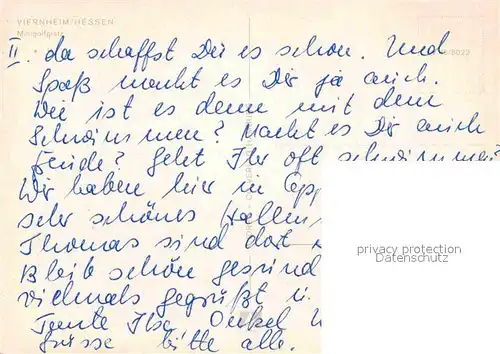 VIERNHEIM/HESSEN
Minigolfplatz
II. da schaffst Du es schon. Und
Spaß macht es Dir ja auch.
Wie ist es denn mit dem
Schwimmen? Macht es Dir auch
Freude? Geht Ihr oft schwimmen
Wir haben hier in Epp
sehr schönes Hallen
Thomas sind dort
Bleib schön gesund
vielmals gegrüßt u.
Tante Ilse Onkel
Grüsse bitte alle.
privacy protection
Datenschutz